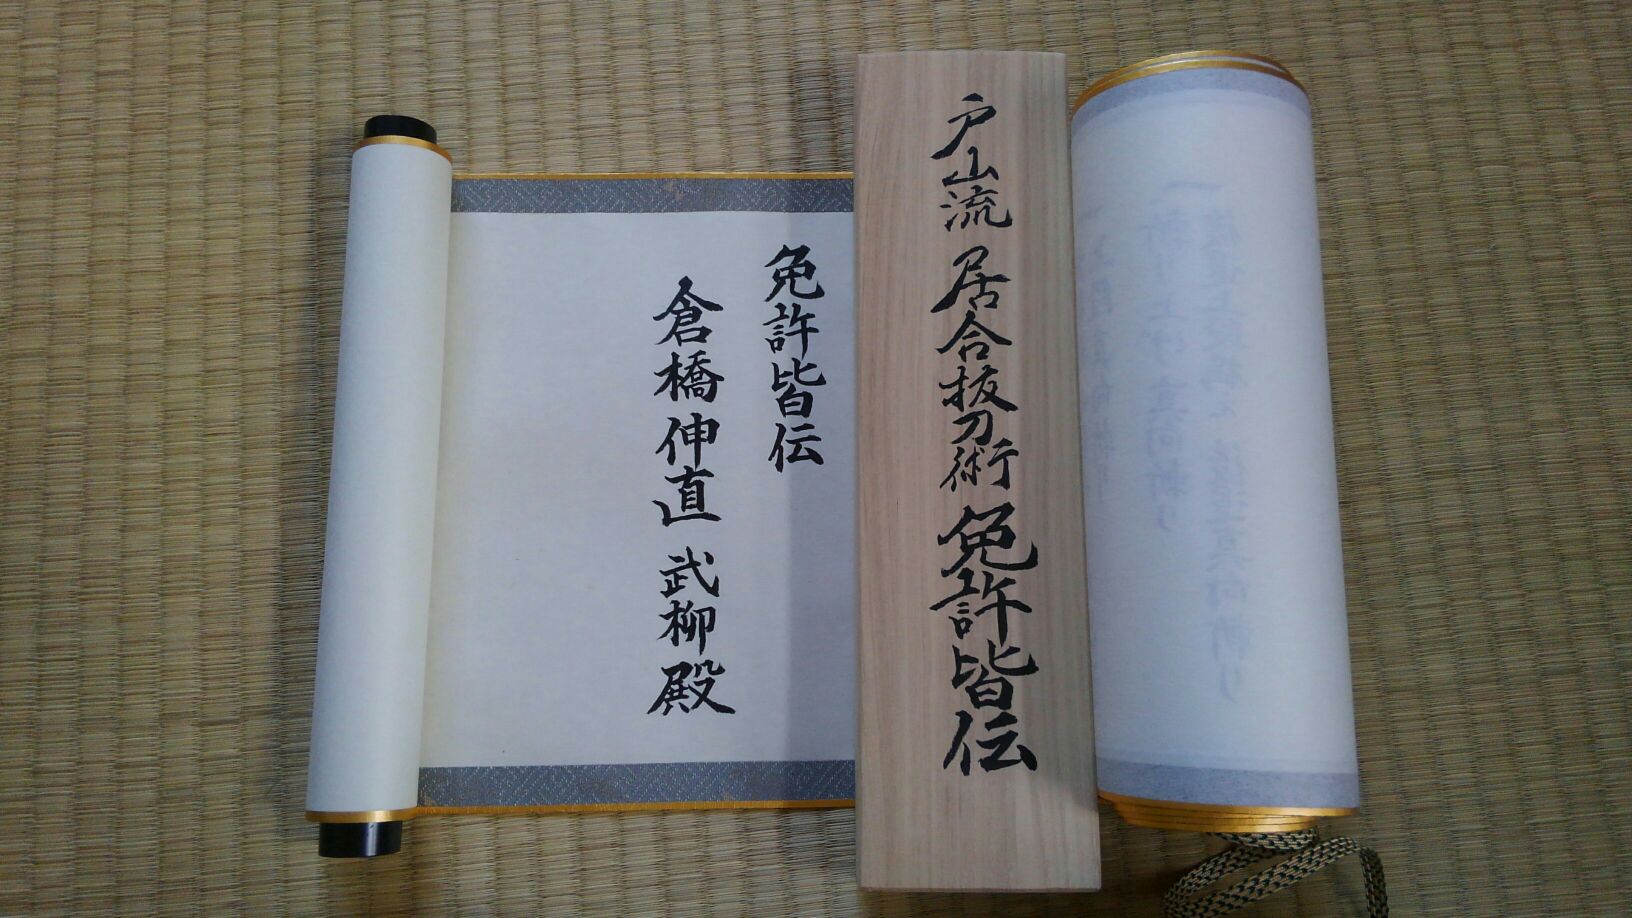 戸山流 居合抜刀術 免許皆伝
免許皆伝
倉橋伸直 武柳殿